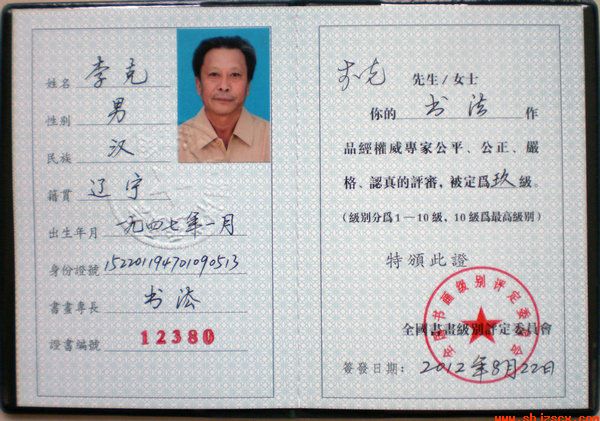 姓名 李克
性別 男
民族 汉
籍貫 辽宁
出生年月 一九四七年一月
身份證號 152201194701090513
書畫專長 书法
證書編號 12380
李克 先生/女士
你的 书法 作
品經權威專家公平、公正、嚴
格、認真的評審，被定爲 玖 級。
(級別分爲1—10級，10級爲最高級別)
特頒此證
全国书画级别评定委员会
全國書畫級別評定委員會
簽發日期： 2012年8月22日
www.shizscx.com